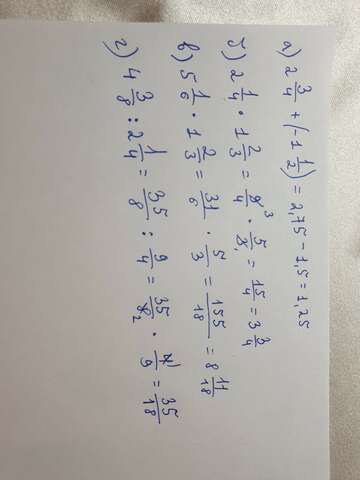 а) 2 3/4 + (-1 1/2) = 2,75 - 1,5 = 1,25
б) 2 1/4 · 1 2/3 = 9/4 3 · 5/3 = 15/4 = 3 3/4
в) 5 1/6 · 1 2/3 = 31/6 · 5/3 = 155/18 = 8 11/18
г) 4 3/8 : 2 1/4 = 35/8 : 9/4 = 35/8 2 · 4 1/9 = 35/18